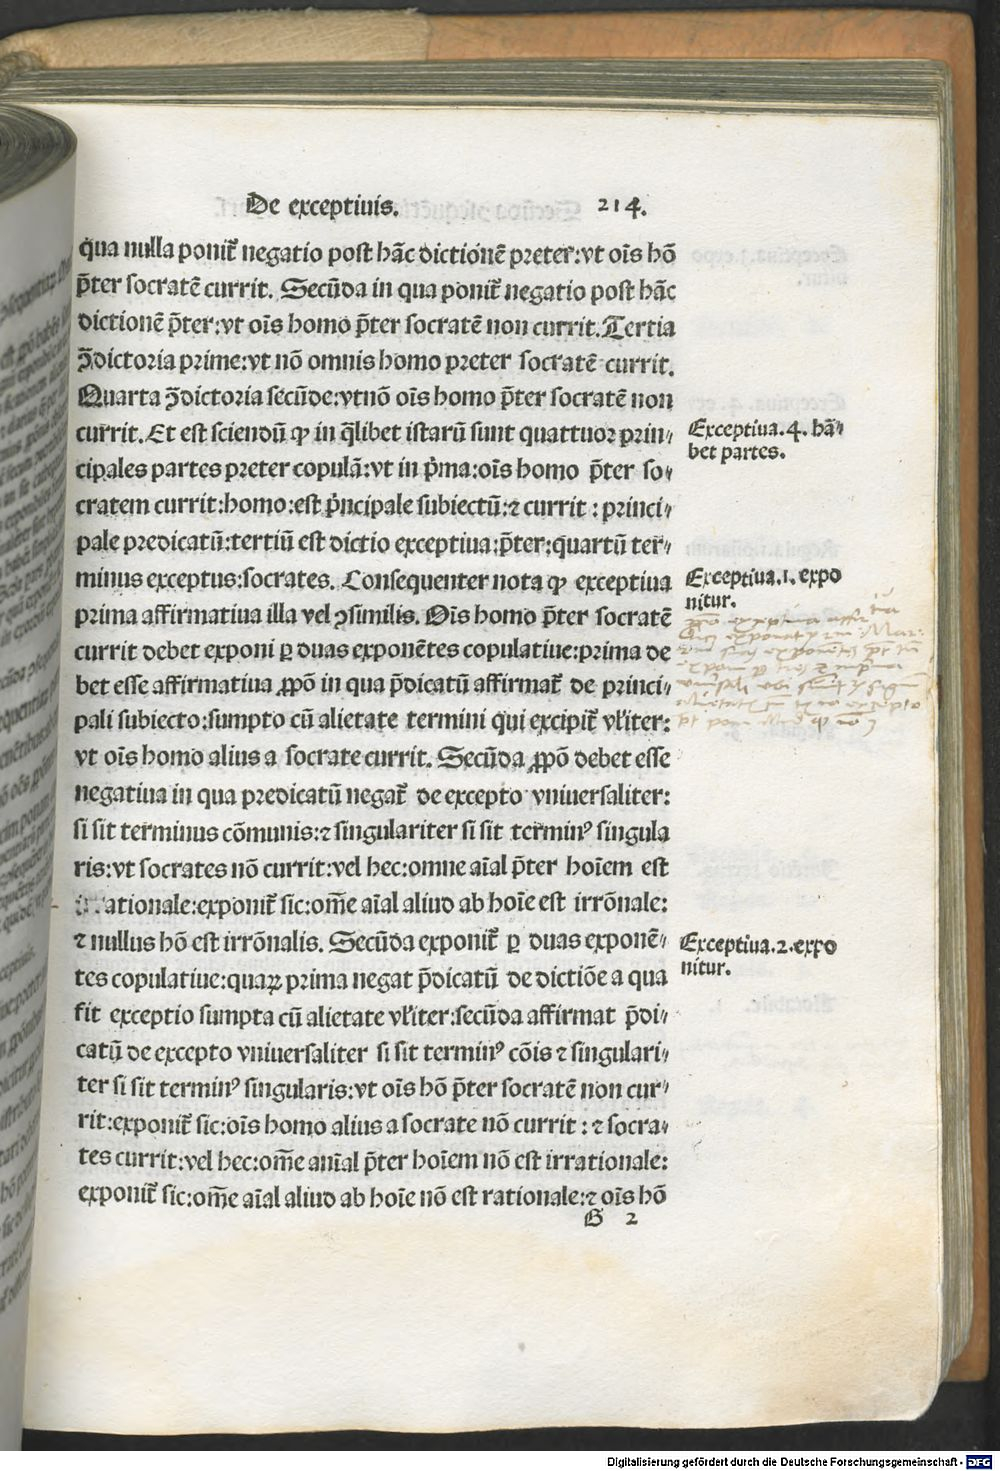 De exceptiuis. 214.
q̃ua nulla ponit᷑ negatio post hãc dictionẽ preter:vt oĩs hõ
p̃ter socratẽ currit. Secũda in qua ponit᷑ negatio post hãc
dictionẽ p̃ter:vt oĩs homo p̃ter socratẽ non currit. Tertia
ↄ̃dictoria prime:vt nõ omnis homo preter socratẽ currit.
Quarta ↄ̃dictoria secũde:vt nõ oĩs homo p̃ter socratẽ non
currit. Et est sciendũ ꝙ in q̃libet istarũ sunt quattuor prin⸗
cipales partes preter copulã:vt in p̃ma:oĩs homo p̃ter so⸗
cratem currit:homo:est p̃ncipale subiectũ:⁊ currit : princi⸗
pale predicatũ:tertiũ est dictio exceptiua:p̃ter:quartũ ter⸗
minus exceptus:socrates. Consequenter nota ꝙ exceptiua
prima affirmatiua illa vel ↄsimilis. Oĩs homo p̃ter socratẽ
currit debet exponi ꝑ duas exponẽtes copulatiue:prima de
bet esse affirmatiua ꝓpõ in qua p̃dicatũ affirmat᷑ de princi⸗
pali subiecto:sumpto cũ alietate termini qui excipit᷑ vl̃iter:
vt oĩs homo alius a socrate currit. Secũda ꝓpõ debet esse
negatiua in qua predicatũ negat᷑ de excepto vniuersaliter:
si sit terminus cõmunis:⁊ singulariter si sit terminꝰ singula
ris:vt socrates nõ currit:vel hec:omne aĩal p̃ter hoĩem est
irrationale:exponit᷑ sic:om̃e aĩal aliud ab hoĩe est irrõnale:
⁊ nullus hõ est irrõnalis. Secũda exponit᷑ ꝑ duas exponẽ⸗
tes copulatiue:quaꝝ prima negat p̃dicatũ de dictiõe a qua
fit exceptio sumpta cũ alietate vl̃iter:secũda affirmat p̃di⸗
catũ de excepto vniuersaliter si sit terminꝰ cõis ⁊ singulari⸗
ter si sit terminꝰ singularis:vt oĩs hõ p̃ter socratẽ non cur⸗
rit:exponit᷑ sic:oĩs homo alius a socrate nõ currit : ⁊ socra⸗
tes currit:vel hec:om̃e anĩal p̃ter hoĩem nõ est irrationale:
exponit᷑ sic:om̃e aĩal aliud ab hoĩe nõ est rationale:⁊ oĩs hõ
G 2
Exceptiua.4. hã⸗
bet partes.
Exceptiua.1. expo
nitur.
Exceptiua.2.expo
nitur.
Digitalisierung gefördert durch die Deutsche Forschungsgemeinschaft - DFG